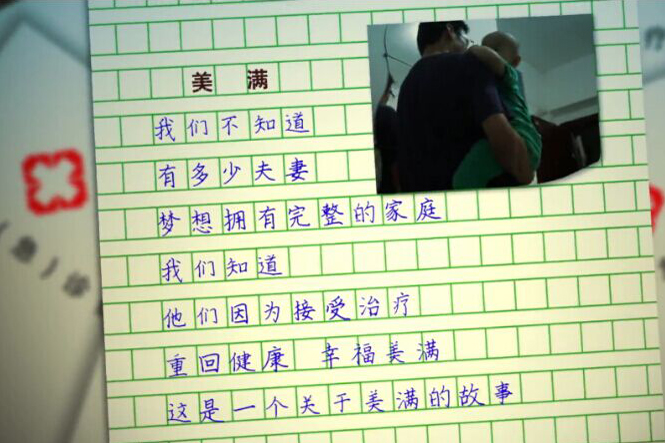 美 满
我们不知道
有多少夫妻
梦想拥有完整的家庭
我们知道
他们因为接受治疗
重回健康 幸福美满
这是一个关于美满的故事
(急)诊